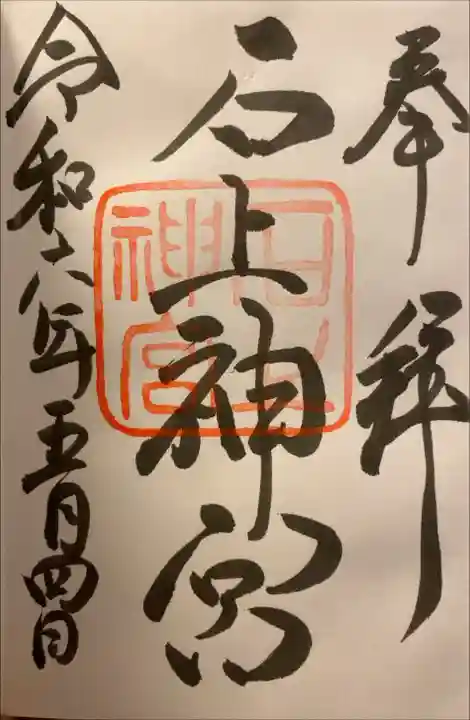 奉拝
石上神宮
石上神宮
令和六年五月四日